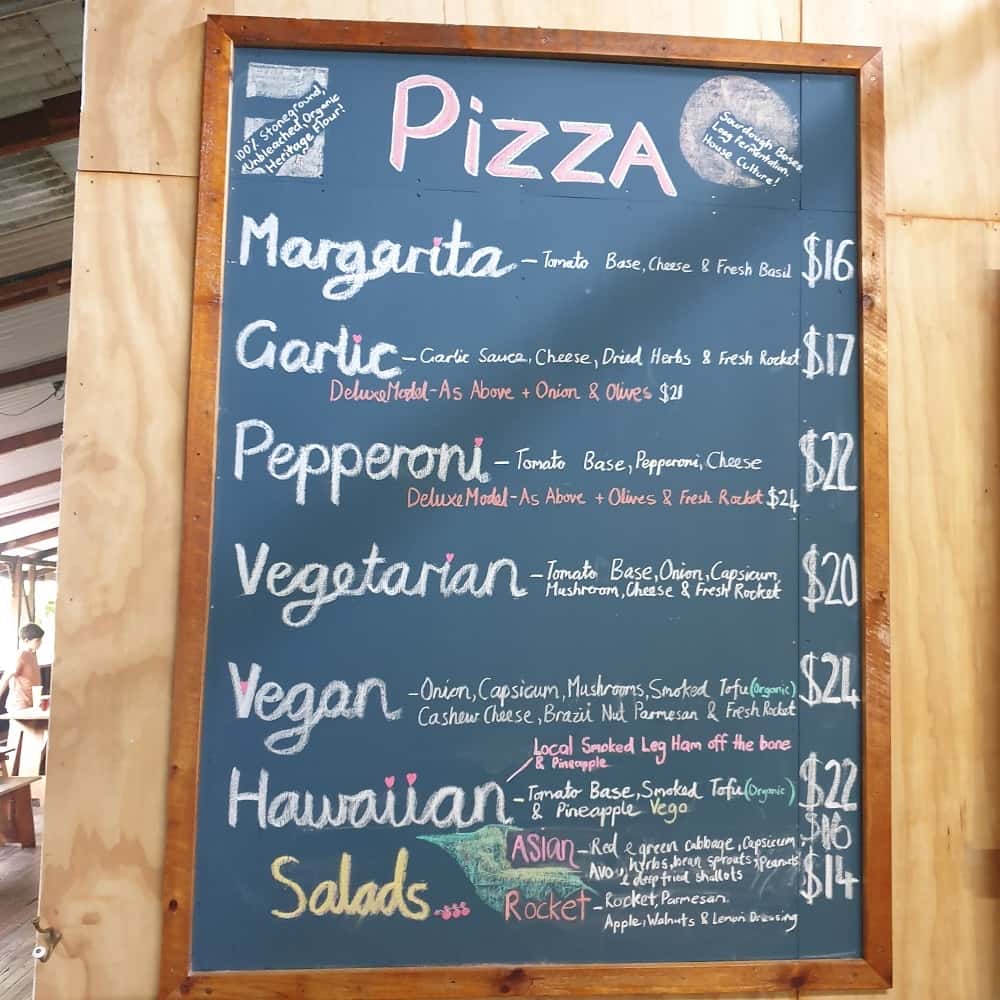 100% Stoneground,
Unbleached, Organic
Heritage Flour!
PizzA
Sourdough Bases
Long Fermentation.
House Culture!
Margarita – Tomato Base, Cheese & Fresh Basil $16
Garlic – Garlic Sauce, Cheese, Dried Herbs & Fresh Rocket $17
Deluxe Model - As Above + Onion & Olives $21
Pepperoni – Tomato Base, Pepperoni, Cheese $22
Deluxe Model - As Above + Olives & Fresh Rocket $24
Vegetarian – Tomato Base, Onion, Capsicum, $20
Mushroom, Cheese & Fresh Rocket
Vegan – Onion, Capsicum, Mushrooms, Smoked Tofu (Organic) $24
Cashew Cheese, Brazil Nut Parmesan & Fresh Rocket
Local Smoked Leg Ham off the bone
& Pineapple
Hawaiian – Tomato Base, Smoked Tofu (Organic) $22
& Pineapple Vego
Salads
ASian – Red & green cabbage, Capsicum, $16
Avo, hyrbs, bean sprouts, Peanuts
& deep fried shallots
Rocket – Rocket, Parmesan $14
Apple, Walnuts & Lemon Dressing